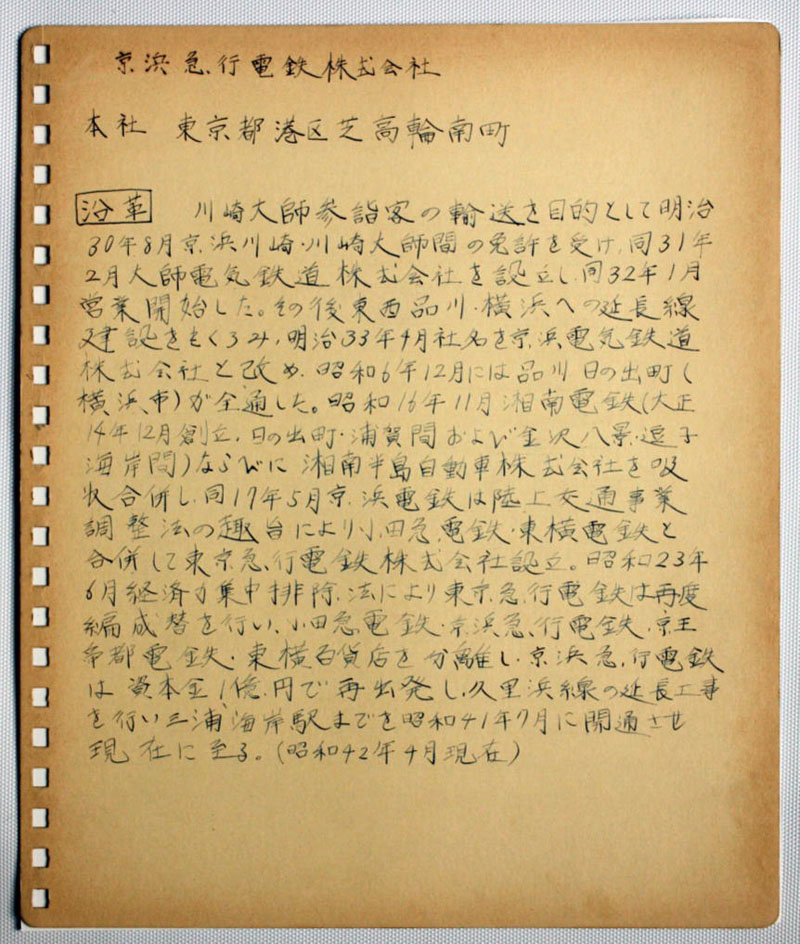 京浜急行電鉄株式会社
本社 東京都港区芝高輪南町
沿革 川崎大師参詣客の輸送を目的として明治
30年8月京浜川崎・川崎大師間の免許を受け、同31年
2月大師電気鉄道株式会社を設立し、同32年1月
営業開始した。その後東西品川・横浜への延長線
建設をもくろみ、明治33年4月社名を京浜電気鉄道
株式会社と改め、昭和6年12月には品川 日の出町(
横浜市)が全通した。昭和16年11月湘南電鉄(大正
14年12月創立、日の出町・浦賀間および金沢八景・逗子
海岸間)ならびに湘南半島自動車株式会社を吸
収合併し、同17年5月京浜電鉄は陸上交通事業
調整法の趣旨により小田急電鉄・東横電鉄と
合併して東京急行電鉄株式会社設立。昭和23年
6月経済力集中排除法により東京急行電鉄は再度
編成替を行い、小田急電鉄・京浜急行電鉄・京王
帝都電鉄・東横百貨店を分離し、京浜急行電鉄
は資本金1億円で再出発し、久里浜線の延長工事
を行い三浦海岸駅までを昭和41年7月に開通させ
現在に至る。(昭和42年4月現在)